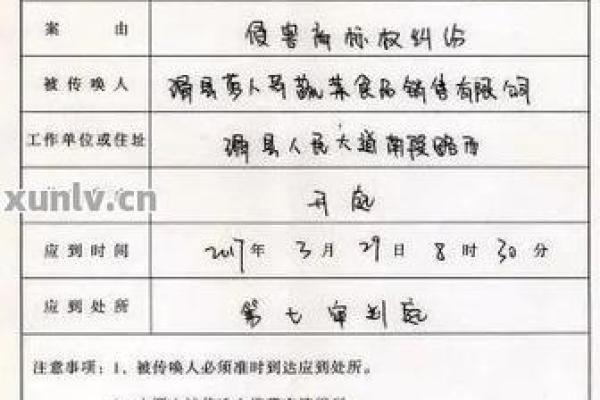 案由 侵害商标权纠纷
被传唤人 滑县 人 蔬菜食品销售有限公司
工作单位或住址 滑县人民大道南段路西
xunlv.cn 开庭
应到时间 2017年3月29日8时30分
应到处所 第七审判庭
注意事项：1、被传唤人必须准时到达应到处所。